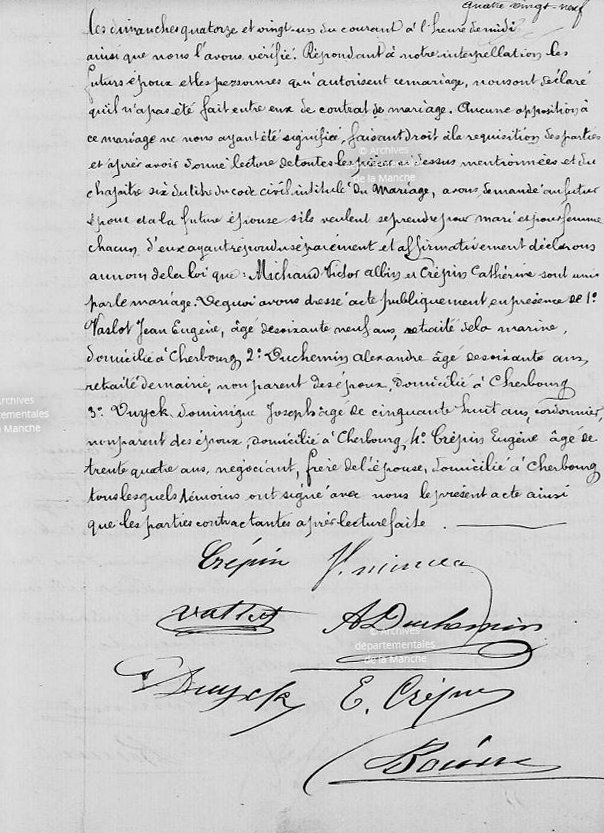 quatre vingt-neuf
les dimanches quatorze et vingt-un du courant à l'heure de midi
ainsi que nous l'avons vérifié. Répondant à notre interpellation les
futurs époux et les personnes qu'autorisent ce mariage, nous ont déclaré
qu'il n'a pas été fait entre eux de contrat de mariage. Aucune opposition à
ce mariage ne nous ayant été signifiée, faisant droit à la requisition des parties
et après avoir donné lecture de toutes les pièces ci dessus mentionnées et du
chapitre six du titre du code civil, intitulé du Mariage, avons demandé au futur
époux et à la future épouse s'ils veulent se prendre pour mari et pour femme
chacun d'eux ayant répondu séparément et affirmativement déclarons
au nom de la loi que Michaud Victor Albin et Crépin Cathérine sont unis
par le mariage. De quoi avons dressé acte publiquement en présence de 1°
Vaslot Jean Eugène, âgé de soixante neuf ans, retraité de la marine,
domicilié à Cherbourg 2° Duchemin Alexandre âgé de soixante ans,
retraité de mairie, non parent des époux, domicilié à Cherbourg
3° Duyck dominique Joseph âgé de cinquante huit ans, cordonnier,
non parent des époux, domicilié à Cherbourg, 4° Crépin Eugène âgé de
trente quatre ans, négociant, frère de l'épouse, domicilié à Cherbourg
tous lesquels témoins ont signé avec nous le présent acte ainsi
que les parties contractantes après lecture faite.
Crépin
A Duchemin
Duyck E. Crépin
© Archives
départementales
de la Manche